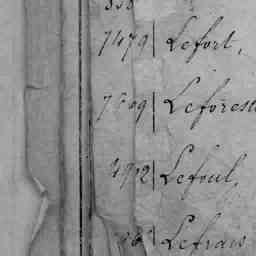 7479 Lefort,
Leforest
4912 Lefoul,
Lefrais